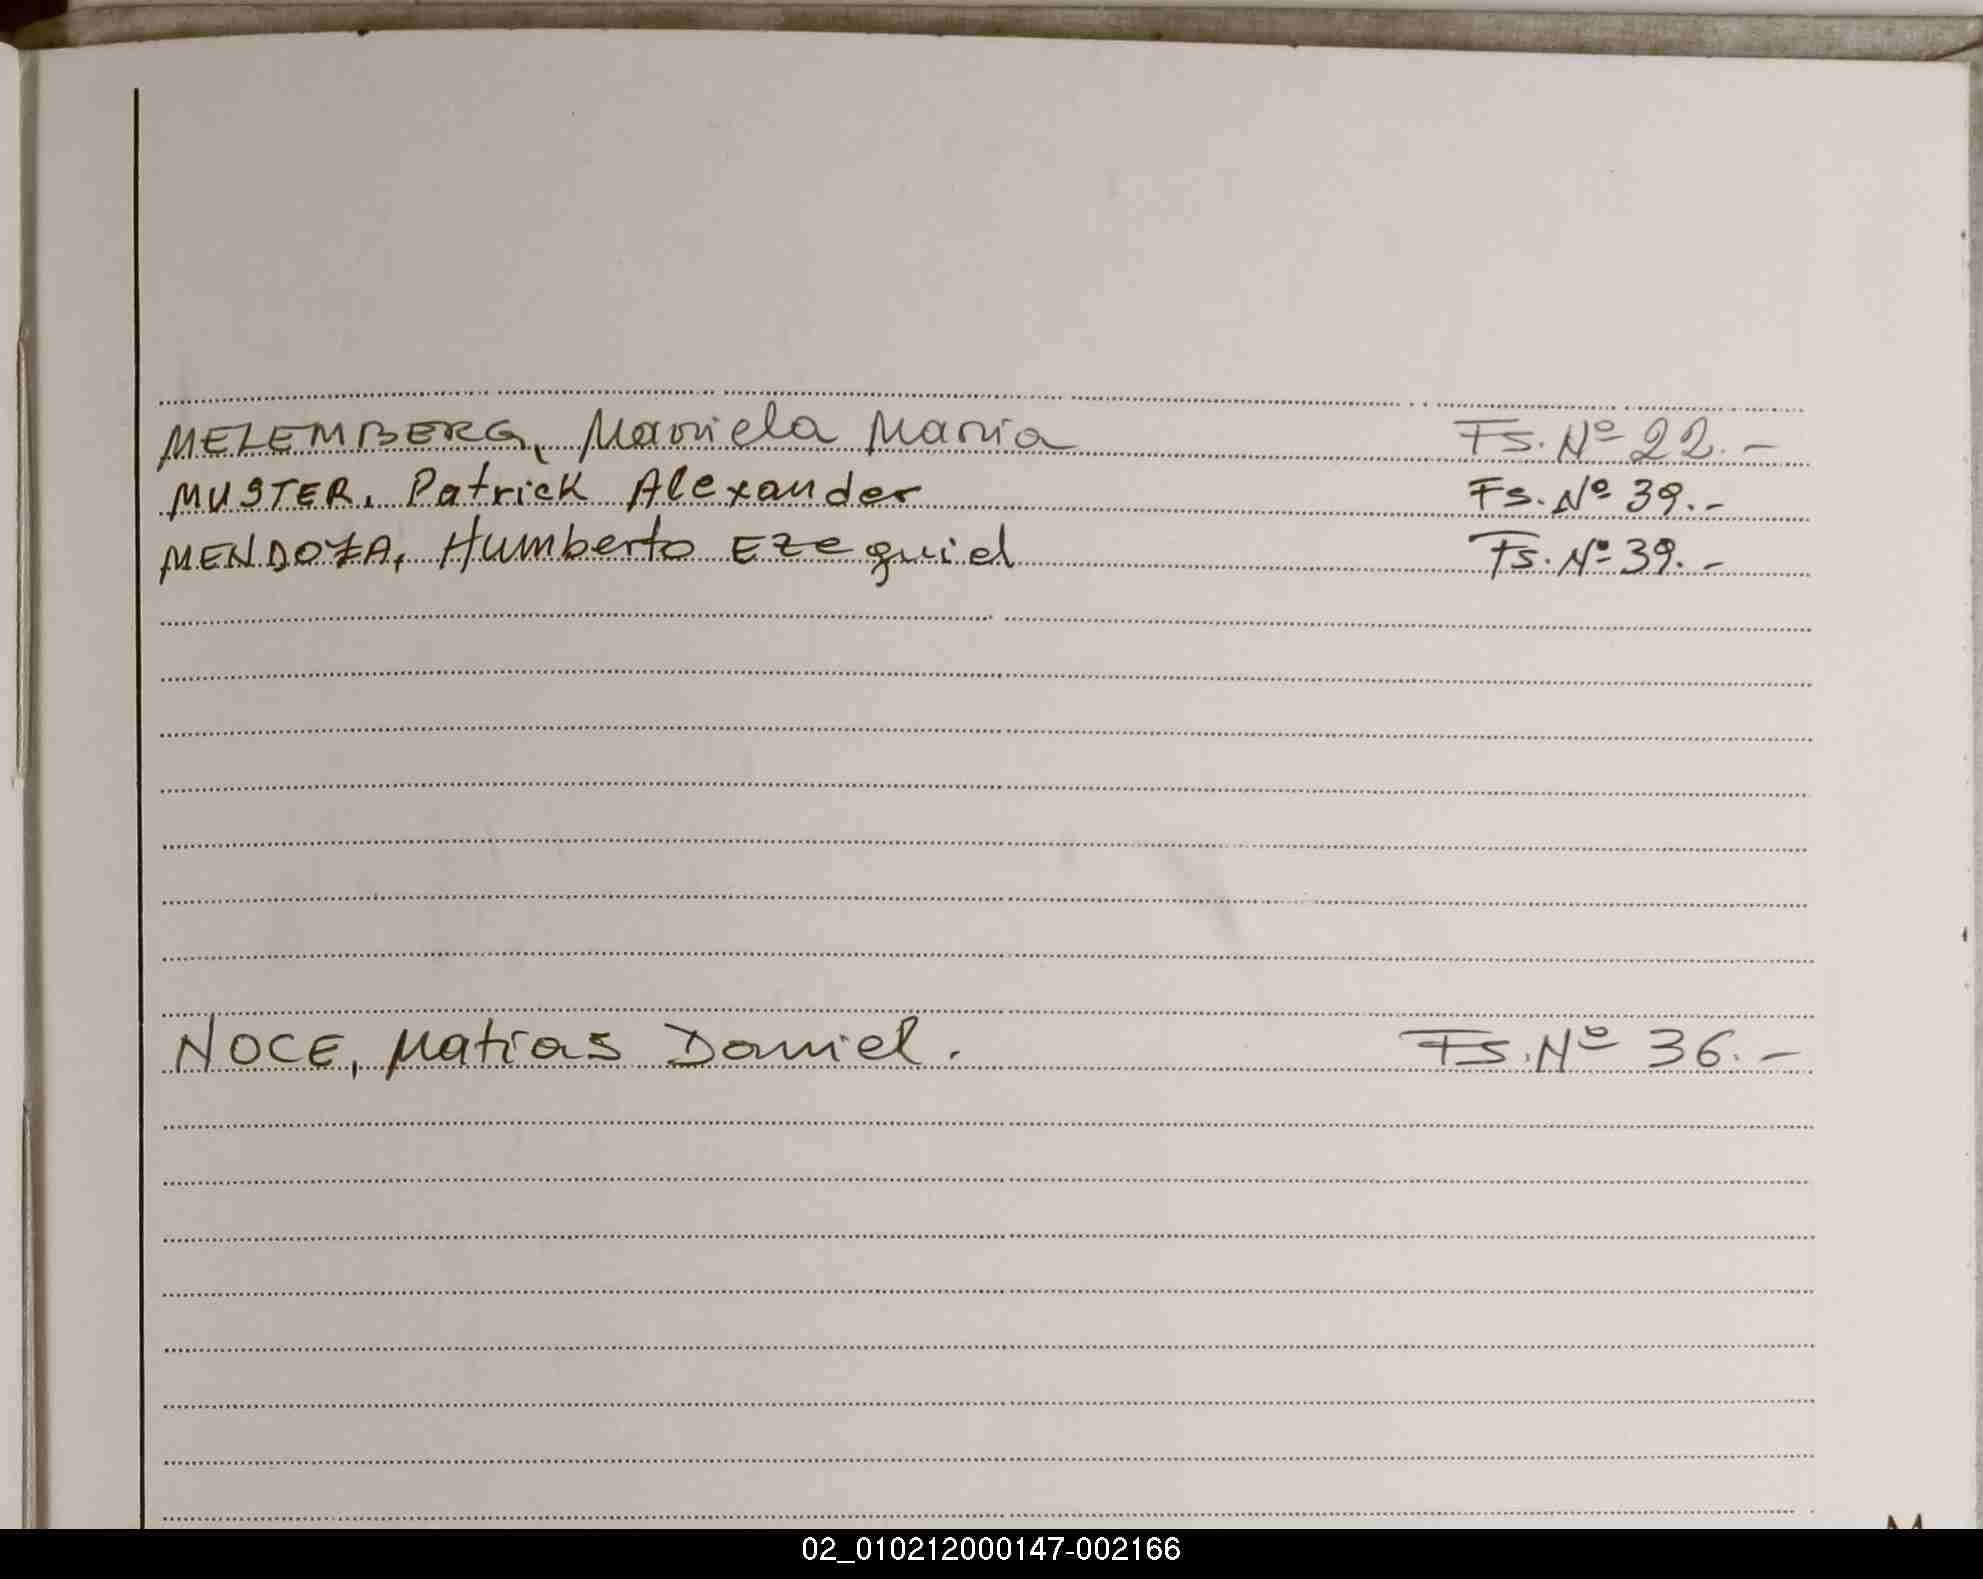 MELEMBERG, Mariela Maria Fs. Nº 22.-
MUSTER, Patrick Alexander Fs. Nº 39.-
MENDOZA, Humberto Ezequiel Fs. Nº 39.-
NOCE, Matias Daniel. Fs. Nº 36.-
M
02_010212000147-002166